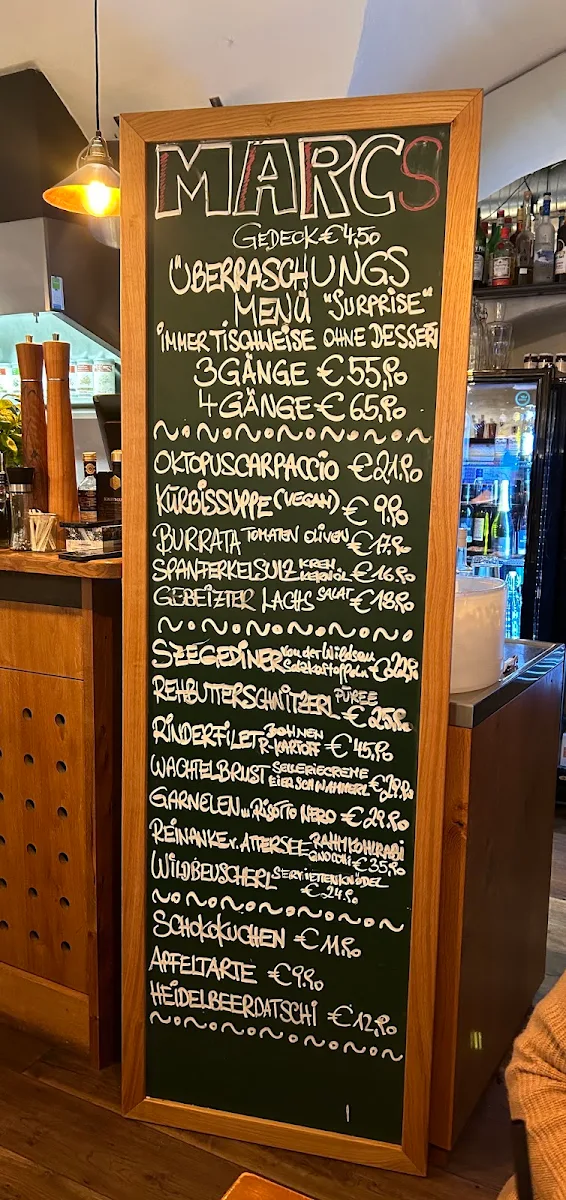 MARCS
GEDECK € 4,50
ÜBERRASCHUNGS
MENÜ "SURPRISE"
IMMER TISCHWEISE OHNE DESSERT
3 GÄNGE € 55,90
4 GÄNGE € 65,90
OKTOPUSCARPACCIO € 21,90
KÜRBISSUPPE (VEGAN) € 9,90
BURRATA TOMATEN OLIVEN € 17,90
SPANFERKELSULZ KREN KERNÖL € 16,90
GEBEIZTER LACHS SALAT € 18,90
SZEGEDINER von der Wildsau Salzkartoffeln € 22,90
REHBUTTERSCHNITZERL PÜREE € 25,90
RINDERFILET BOHNEN R-KARTOFF € 45,90
WACHTELBRUST SELLERIECREME EIERSCHWAMMERL € 29,90
GARNELEN... RISOTTO NERO € 29,90
REINANKE v. ATTERSEE RAHMKOHLRABI GNOCCHI € 35,90
WILDBEUSCHERL SERVIETTENKNÖDEL € 24,90
SCHOKOKUCHEN € 11,90
APFELTARTE € 9,90
HEIDELBEERDATSCHI € 12,90